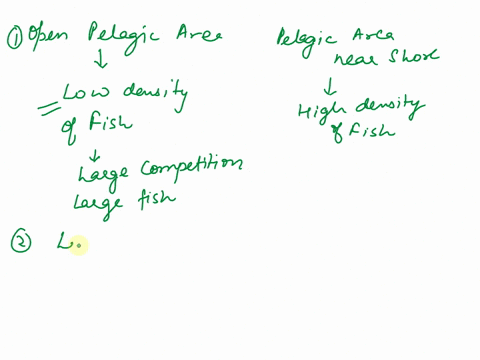 ① Open Pelagic Area
↓
Low density
of Fish
↓
Large Competition
Large fish
Pelagic Area
near Shore
↓
High density
of Fish
② L